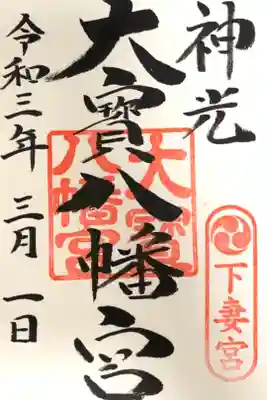 神光
下妻宮
大寳八幡宮
大寳
八幡宮
令和三年 三月 一日